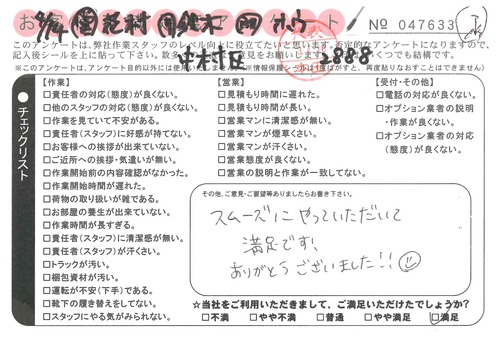 お客 アンケート № 047633
8/4 営 花村 作 鈴木 ホウ
中村区 2888
このアンケートは、弊社作業スタッフのレベル向上に役立てたいと思います。否定的なアンケートになりますので、
記入後シールを上に貼って下さい。数多 意見をお願いします くつでも結構です。
【作業】
□責任者の対応(態度)が良くない。
□他のスタッフの対応(態度)が良くない。
□作業を見ていて不安がある。
□責任者(スタッフ)に好感が持てない。
□お客様への挨拶が出来ていない。
□ご近所への挨拶・気遣いが無い。
□作業開始前の内容確認がなかった。
□作業開始時間が遅れた。
□荷物の取り扱いが雑である。
□お部屋の養生が出来ていない。
□作業時間が長すぎる。
□責任者(スタッフ)に清潔感が無い。
□責任者(スタッフ)が汗くさい。
□トラックが汚い。
□梱包資材が汚い。
□運転が不安(下手)である。
□靴下の履き替えをしてない。
□スタッフにやる気がみられない。
【営業】
□見積もり時間に遅れた。
□見積もり時間が長い。
□営業マンに清潔感が無い。
□営業マンが煙草くさい。
□営業マンが汗くさい。
□営業態度が良くない。
□営業の説明と作業が一致してない。
【受付・その他】
□電話の対応が良くない。
□オプション業者の説明
・作業が良くない。
□オプション業者の対応
(態度)が良くない。
●チェックリスト
その他、ご意見・ご要望等ありましたらお書き下さい。
スムーズにやっていただいて
満足です!
ありがとうございました!!
☆当社をご利用いただきまして、ご満足いただけたでしょうか?
□不満 □やや不満 □普通 □やや満足 □満足